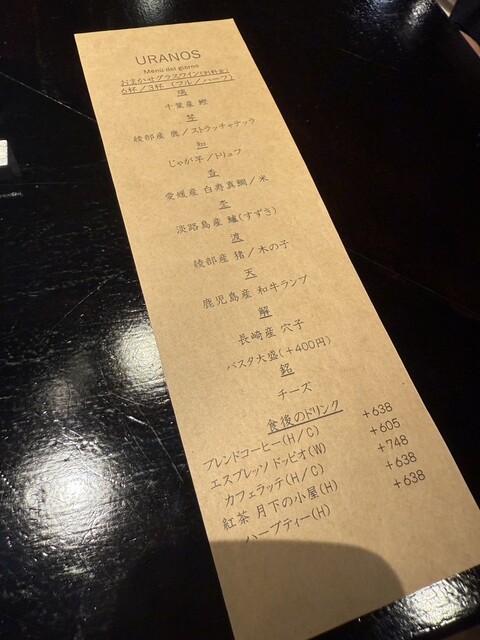 URANOS
Menu del giorno
おまかせグラスワイン(別料金)
6杯/3杯 (フル/ハーフ)
千葉産 鰹
琴
綾部産 鹿/ストラッチャテッラ
知
じゃが芋/トリュフ
香
愛媛産 白寿真鯛/米
恋
淡路島産 鱸(すずき)
波
綾部産 猪/木の子
天
鹿児島産 和牛ランプ
解
長崎産 穴子
パスタ大盛(+400円)
銘
チーズ
食後のドリンク
ブレンドコーヒー(H/C) +638
エスプレッソ ドッピオ(W) +605
カフェラッテ(H/C) +748
紅茶 月下の小屋(H) +638
ハーブティー(H) +638